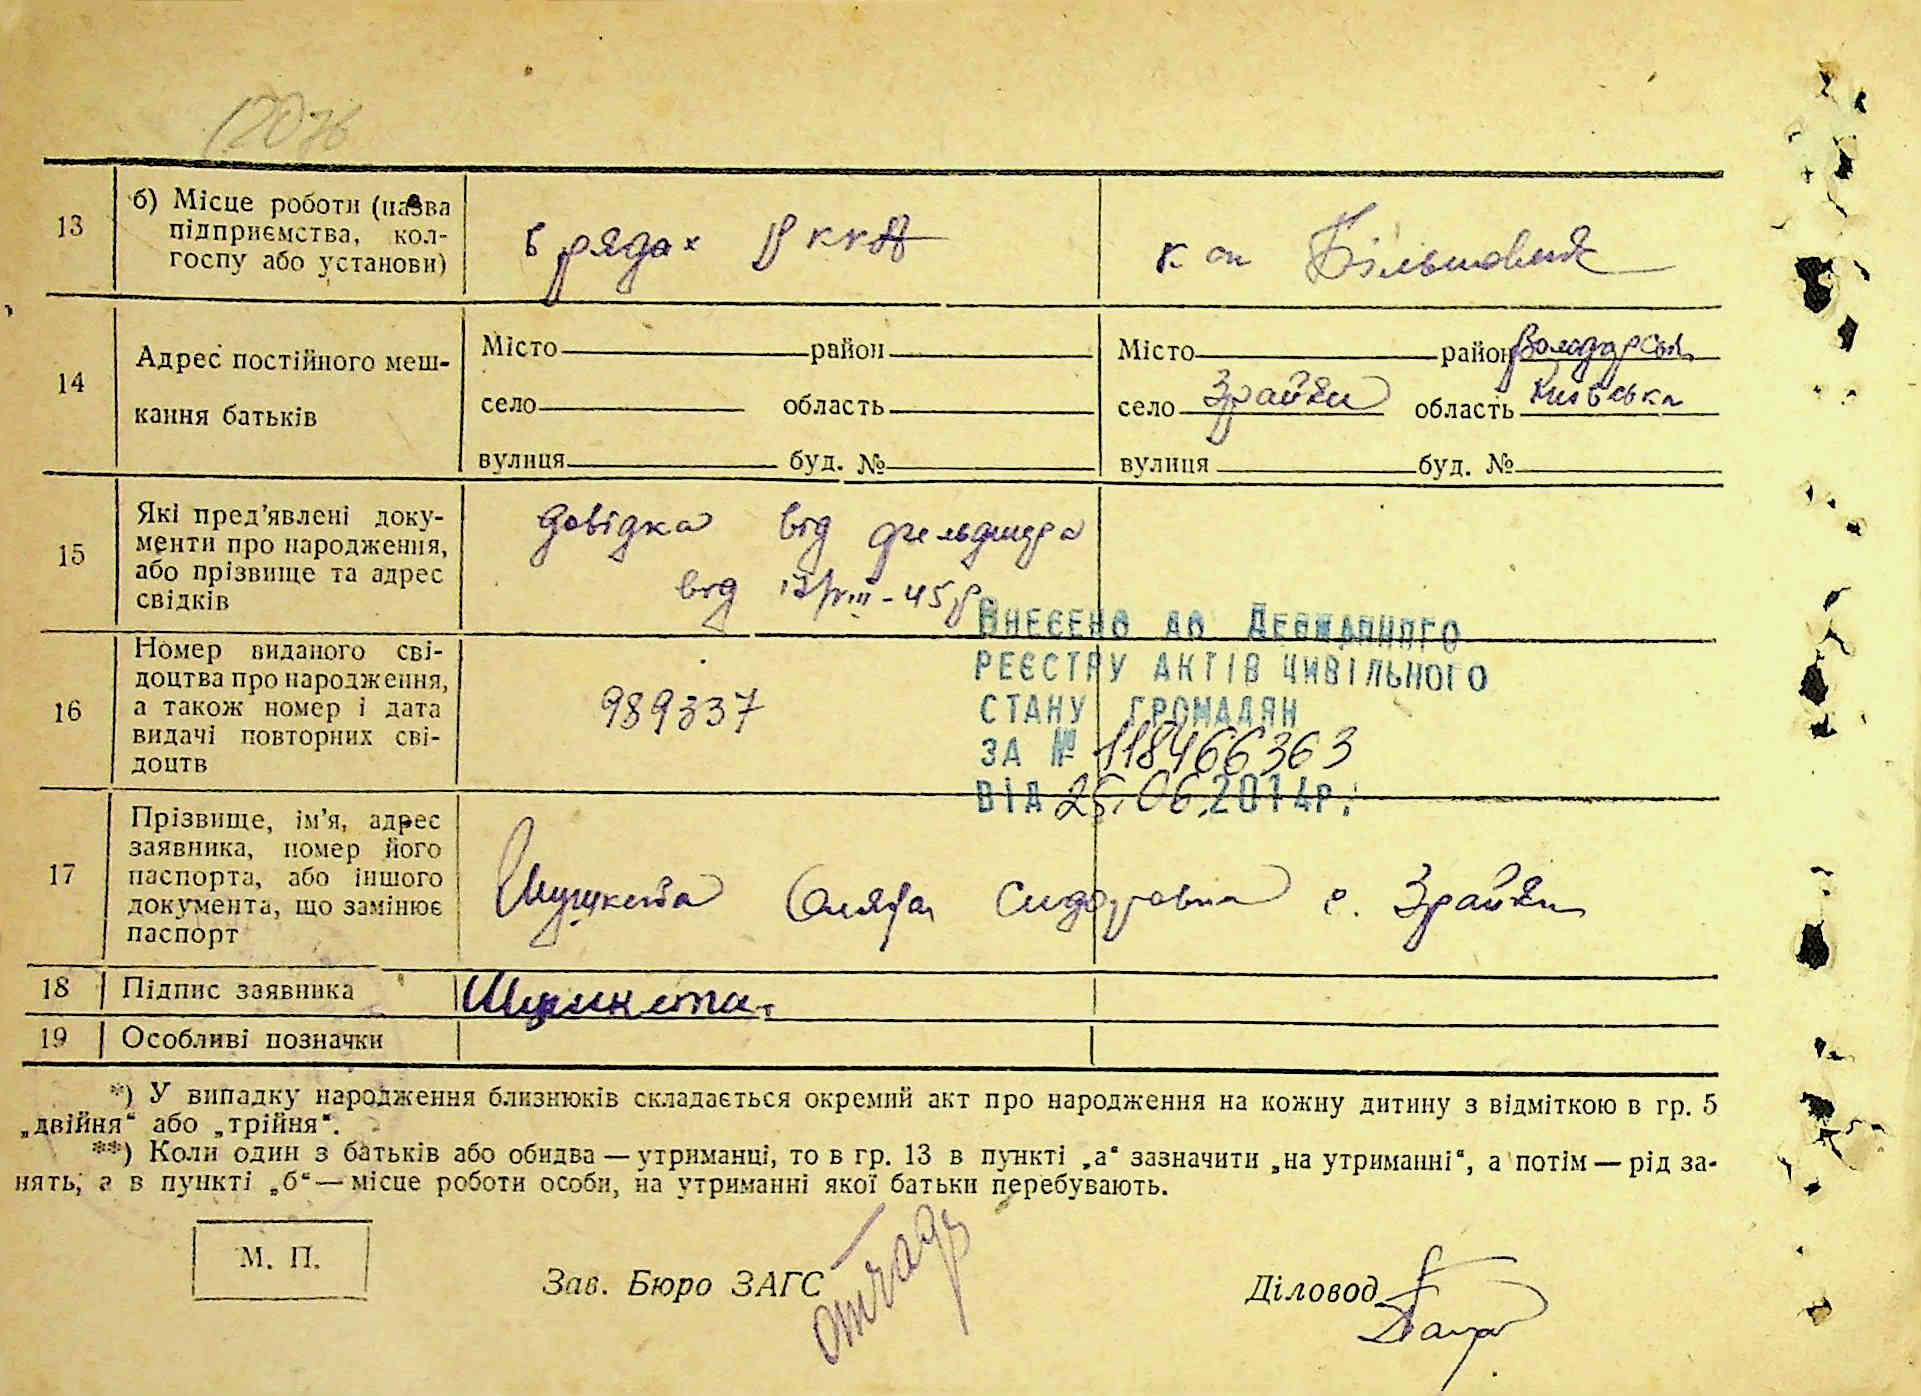 13 б) Місце роботи (назва підприємства, кол-
госпу або установи)
в рядах РККА
к сп Більшовик
14 Адрес постійного меш-
кання батьків
Місто район
село область
вулиця буд. №
Місто район Володарськ
село Зрайки область Київська
вулиця буд. №
15 Які пред’явлені доку-
менти про народження,
або прізвище та адрес
свідків
довідка від фельдшера
від 12/VIII-45 р
ВНЕСЕНО ДО ДЕРЖАВНОГО
РЕЄСТРУ АКТІВ ЦИВІЛЬНОГО
СТАНУ ГРОМАДЯН
ЗА № 118466363
ВІД 25.06.2014р.
16 Номер виданого сві-
доцтва про народження,
а також номер і дата
видачі повторних сві-
доцтв
989337
17 Прізвище, ім’я, адрес
заявника, номер його
паспорта, або іншого
документа, що замінює
паспорт
Сидоровна с. Зрайки
18 Підпис заявника
19 Особливі позначки
*) У випадку народження близнюків складається окремий акт про народження на кожну дитину з відміткою в гр. 5
„двійня“ або „трійня“.
**) Коли один з батьків або обидва — утриманці, то в гр. 13 в пункті „а“ зазначити „на утриманні“, а потім — рід за-
нять, а в пункті „б“ — місце роботи особи, на утриманні якої батьки перебувають.
М. П.
Зав. Бюро ЗАГС
Діловод